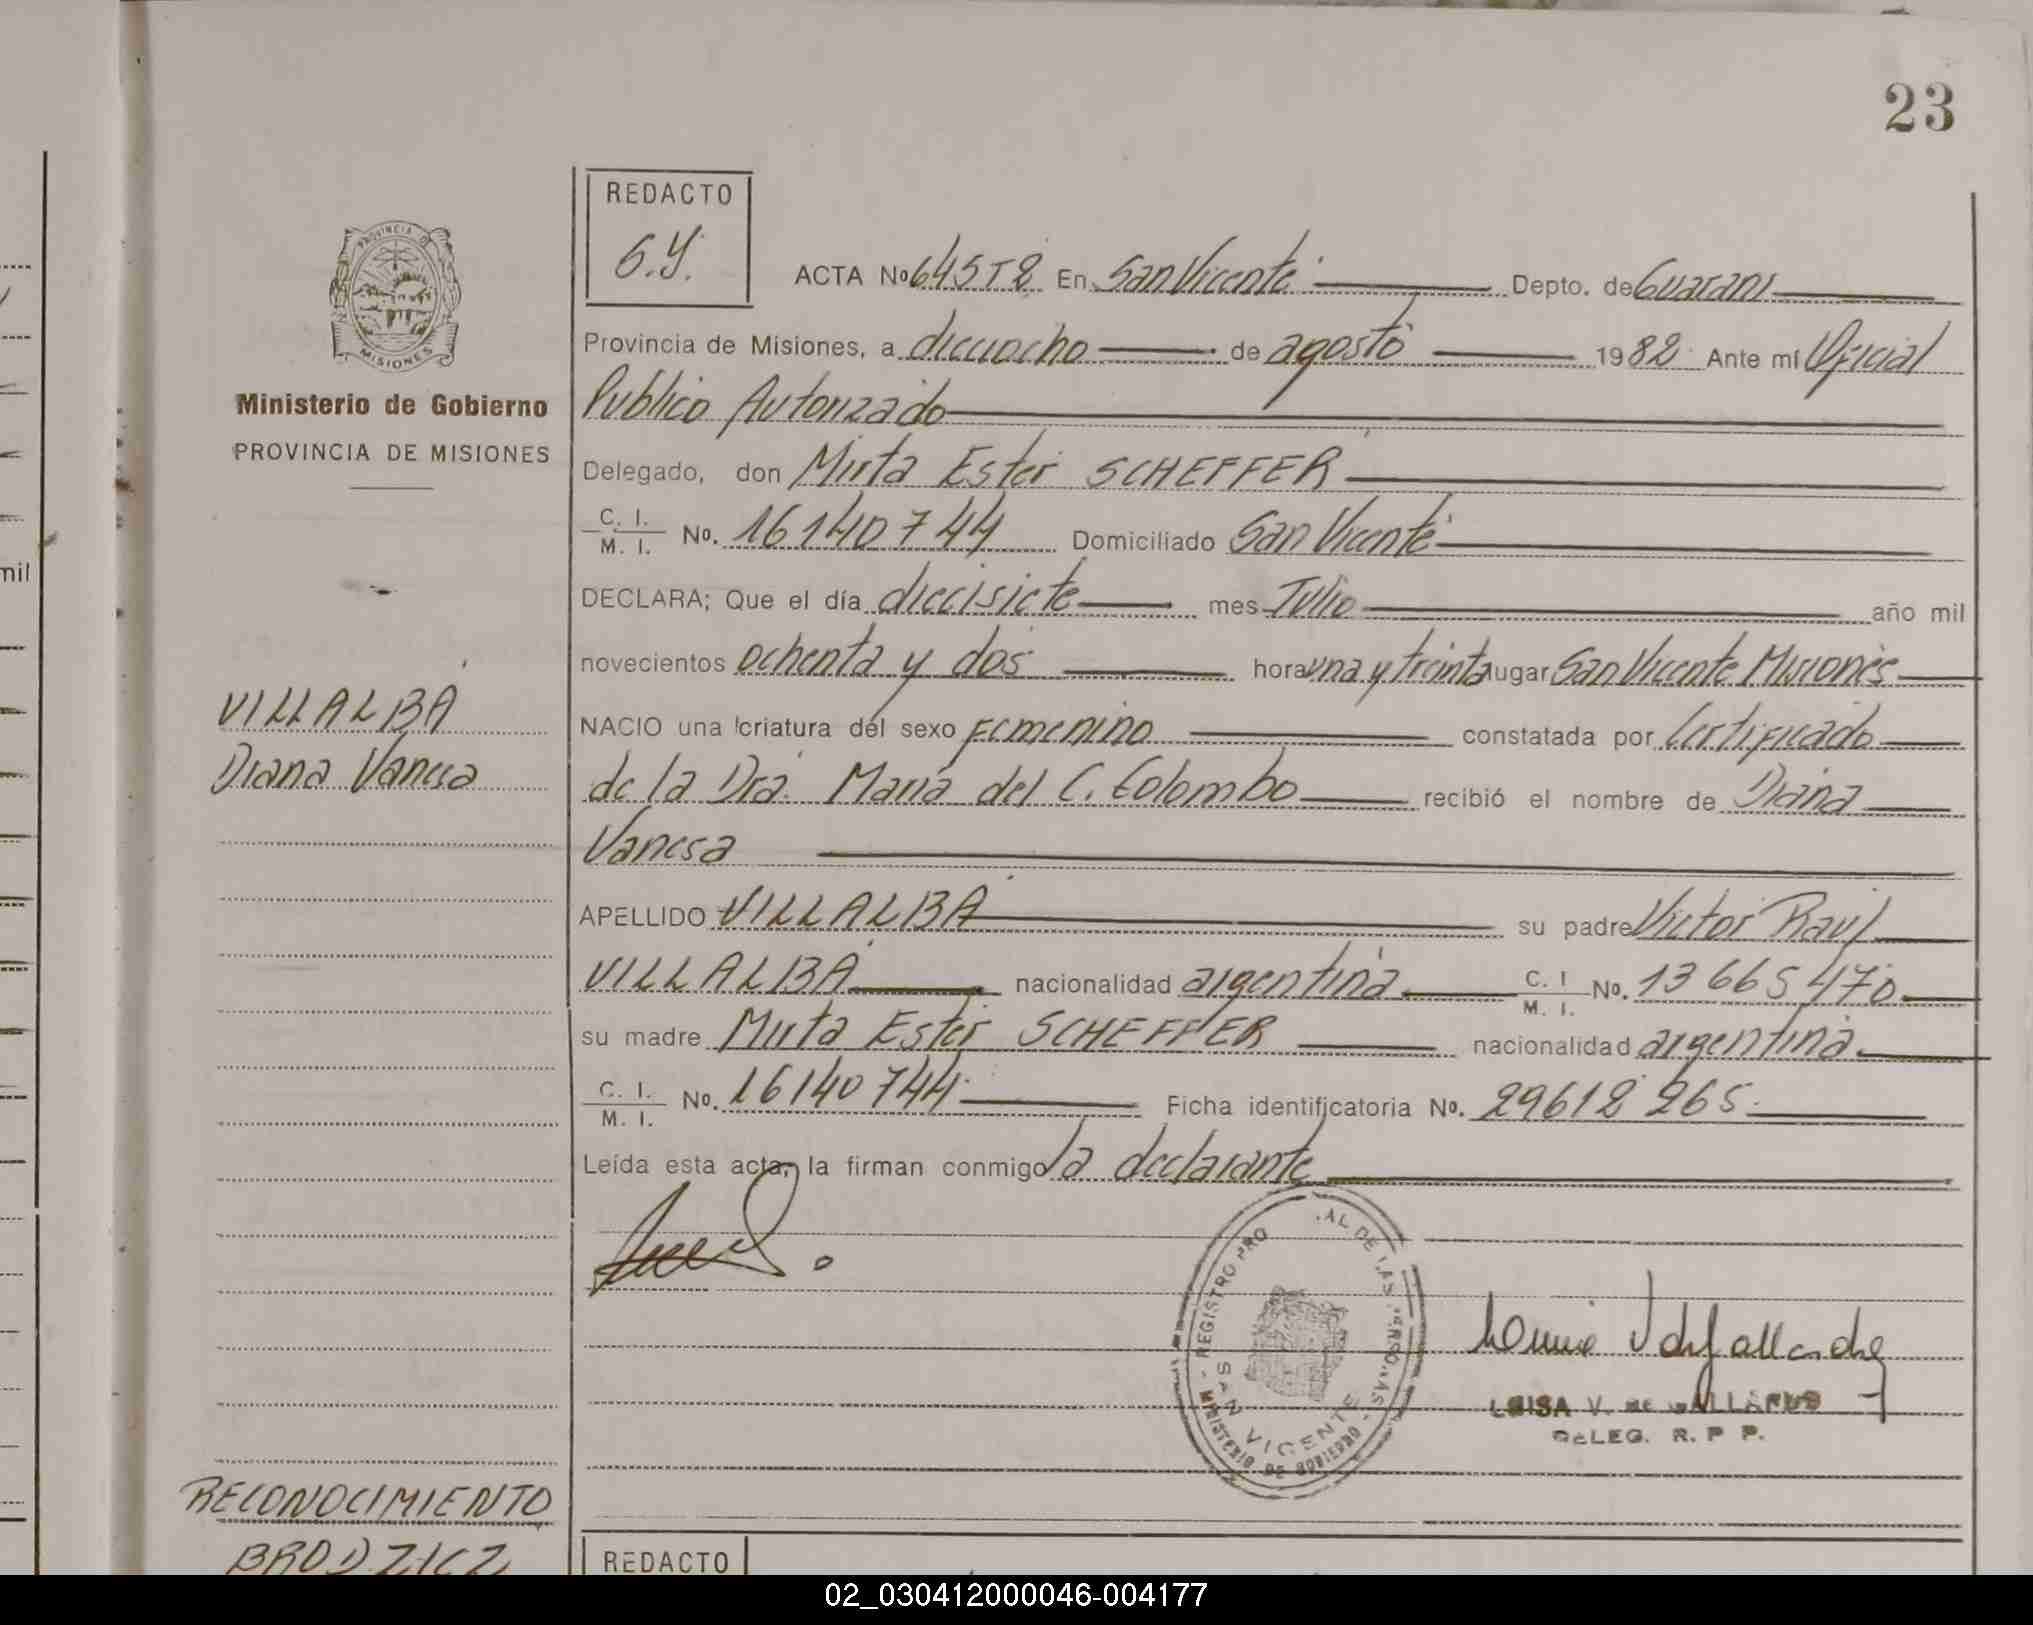 23
REDACTO
G.Y.
ACTA Nº 645T8 En San Vicente Depto. de Guarani
Provincia de Misiones, a dieciocho de agosto 1982 Ante mí Oficial
Publico Autorizado
Delegado, don Mirta Ester SCHEFFER
C. I. / M. I. Nº. 16140744 Domiciliado San Vicente
DECLARA; Que el día diecisiete mes Julio año mil
novecientos ochenta y dos hora una y treinta lugar San Vicente Misiones
NACIO una criatura del sexo Femenino constatada por Certificado
de la Dra. Maria del C. Colombo recibió el nombre de Diana
Vanesa
APELLIDO VILLALBA su padre Victor Raul
VILLALBA nacionalidad argentina C. I / M. I. Nº. 13 665 470
su madre Mirta Ester SCHEFFER nacionalidad argentina
C. I. / M. I. Nº. 16140744 Ficha identificatoria Nº. 29618 265
Leída esta acta, la firman conmigo la declarante
PROVINCIA D
MISIONES
Ministerio de Gobierno
PROVINCIA DE MISIONES
VILLALBA
Diana Vanesa
REGISTRO PRO AL DE LAS PERSONAS
SAN VICENTE
MINISTERIO DE GOBIERNO
LUISA V. DE GALLARDO
DELEG. R. P P.
RECONOCIMIENTO
BRODZICZ
REDACTO
mil
02_030412000046-004177